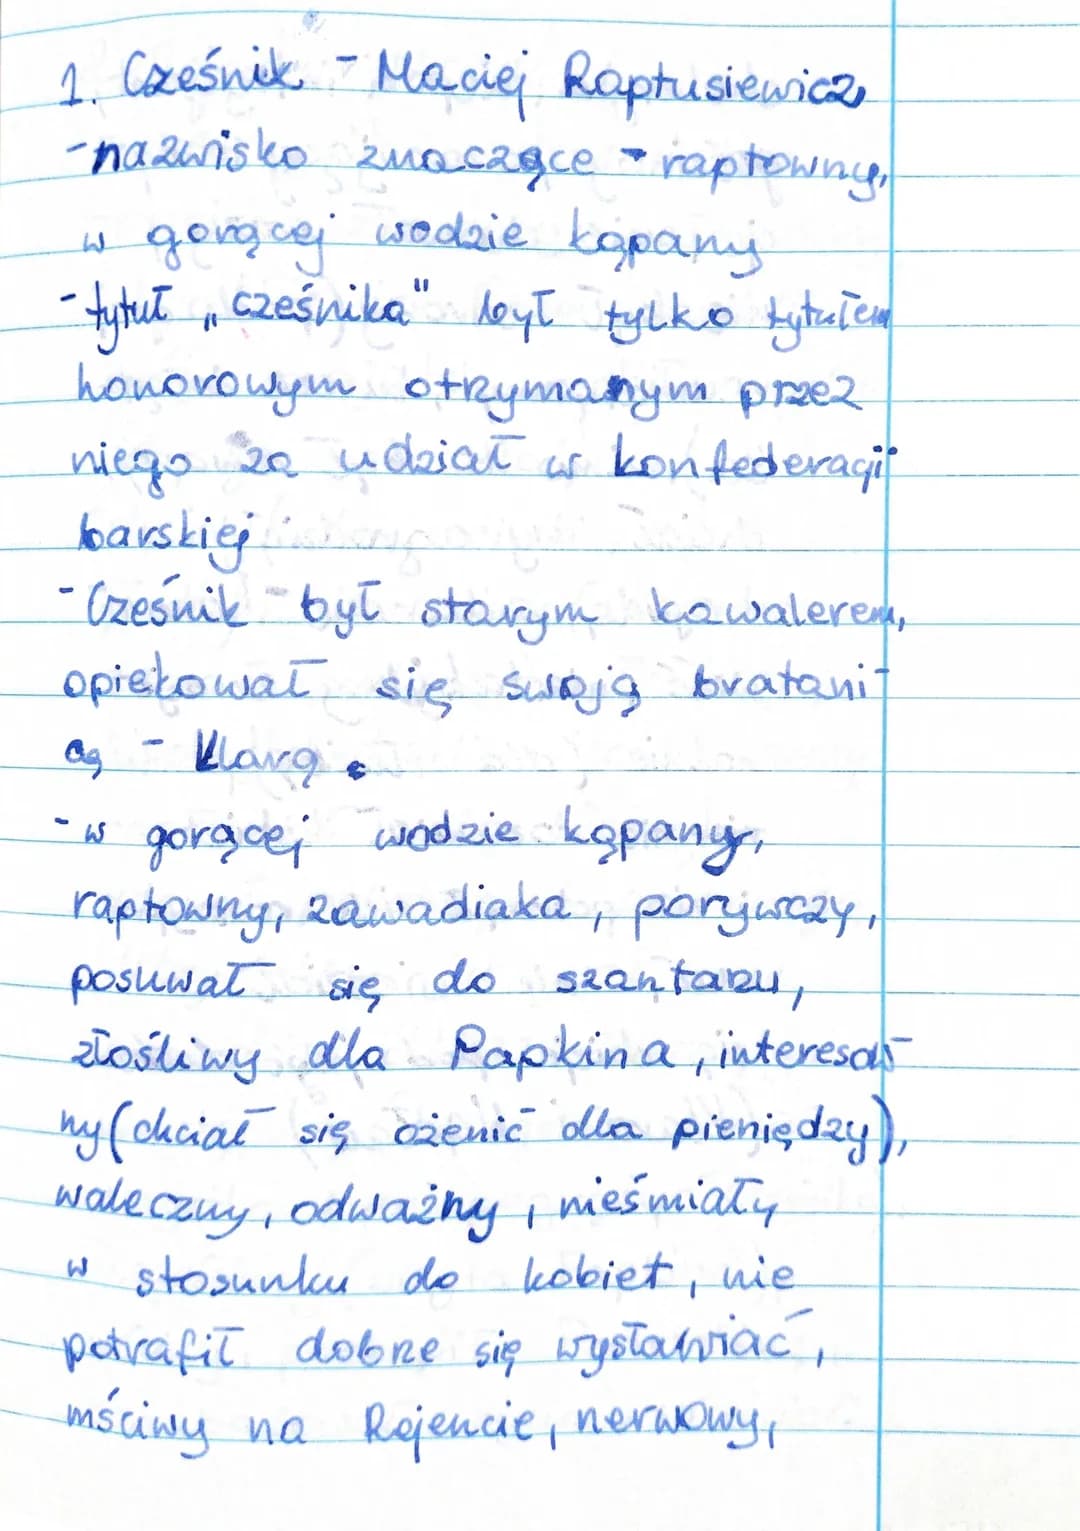 1. Cześnik - Maciej Raptusiewicz,
- nazwisko znaczące - raptowny,
w gorącej wodzie kąpany
- tytuł „cześnika" był tylko tytułem
honorowym otrzymanym przez
niego za udział w konfederacji
barskiej
- Cześnik - był starym kawalerem,
opiekował się swoją bratani-
cą - Klarą.
- w gorącej wodzie kąpany,
raptowny, zawadiaka, porywczy,
posuwał się do szantażu,
złośliwy dla Papkina, interesow-
ny (chciał się ożenić dla pieniędzy),
waleczny, odważny, nieśmiały
w stosunku do kobiet, nie
potrafił dobrze się wysławiać,
mściwy na Rejencie, nerwowy,